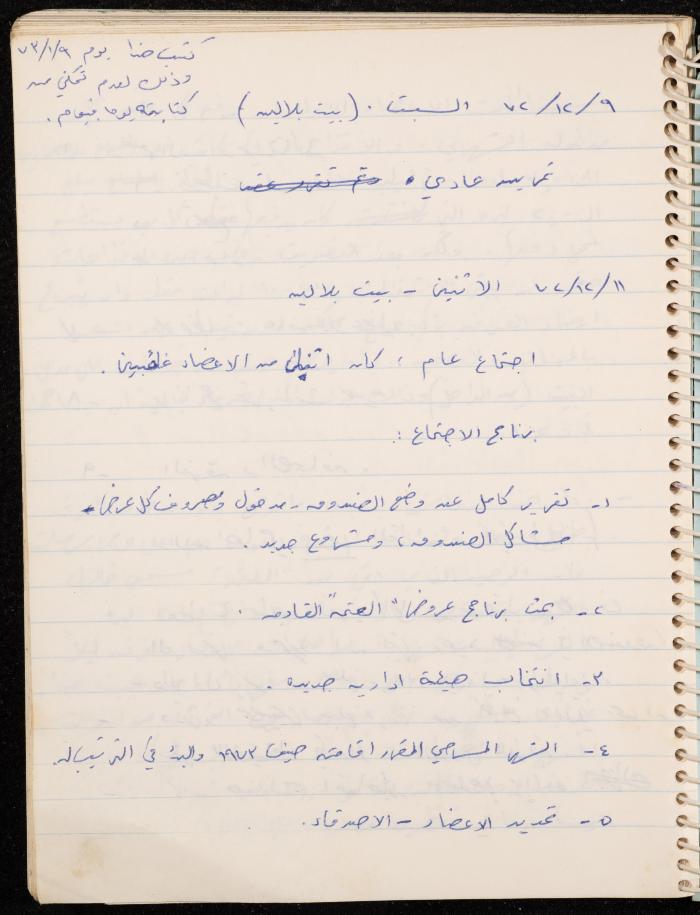 كتب هذا يوم ٧٣/١/٩
وذلك لعدم تمكني من
كتابته يوما فيوم .
٧٢/١٢/٩ السبت . ( بيت بلالين )
تمرين عادي .
٧٢/١٢/١١ الاثنين - بيت بلالين
اجتماع عام ، كان اثنان من الاعضاء غائبين .
برنامج الاجتماع :
١- تقرير كامل عن وضع الصندوق - مدخول ومصروف كل عرض -
مشاكل الصندوق ، ومشروع جديد .
٢- بحث برنامج عروض "العتمة" القادمة .
٣- انتخاب هيئة ادارية جديدة .
٤- الشهر المسرحي المقرر اقامته صيف ١٩٧٣ والبدء في الترتيب له .
٥- تحديد الاعضاء - الاصدقاء .